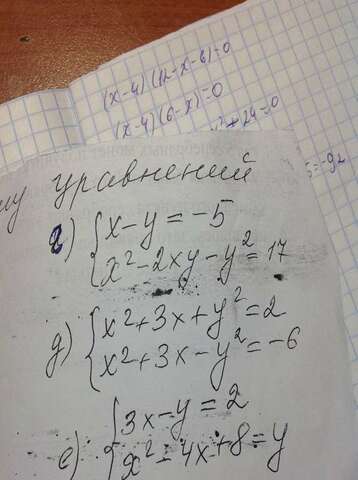 (x-4)(12-x-6)=0
(x-4)(6-x)=0
+24=0
уравнений
г) { x-y=-5
x²-2xy-y²=17
д) { x²+3x+y²=2
x²+3x-y²=-6
е) { 3x-y=2
x²-4x+8=y